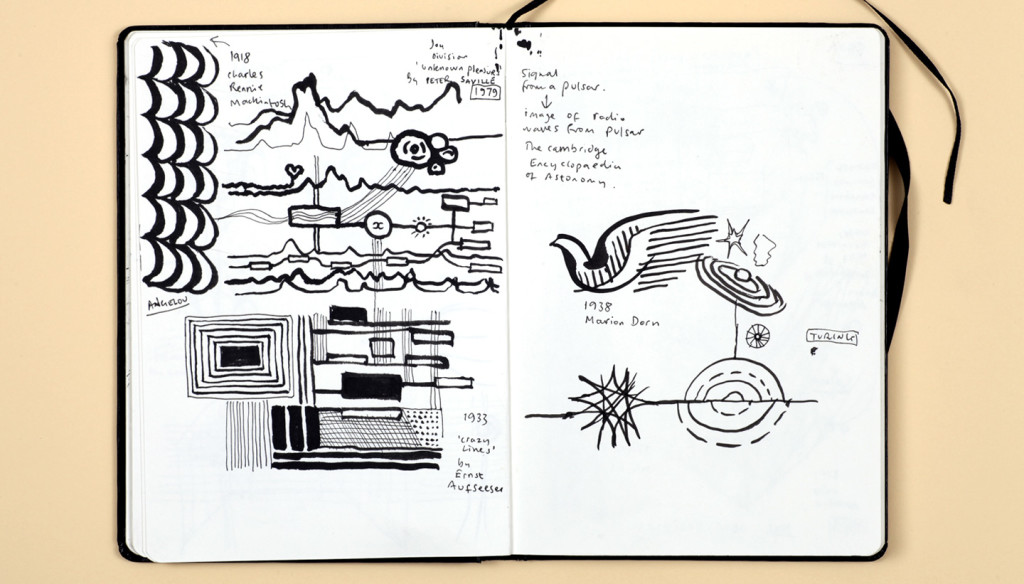 1918
Charles
Rennie
Mackintosh
Joy
Division
'unknown pleasures'
by PETER SAVILLE
1979
ANGELOU
1933
'crazy
Lines'
by
Ernst
Aufseeser
Signal
from a pulsar.
image of radio
waves from pulsar
The cambridge
Encyclopaedia
of Astonomy.
1938
Marion Dorn